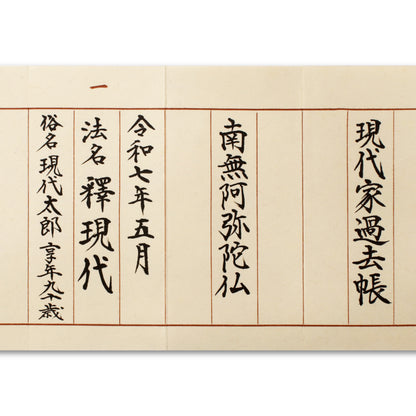 現代家過去帳
南無阿弥陀仏
令和七年五月
法名 釋現代
俗名 現代太郎 享年九十歳
一